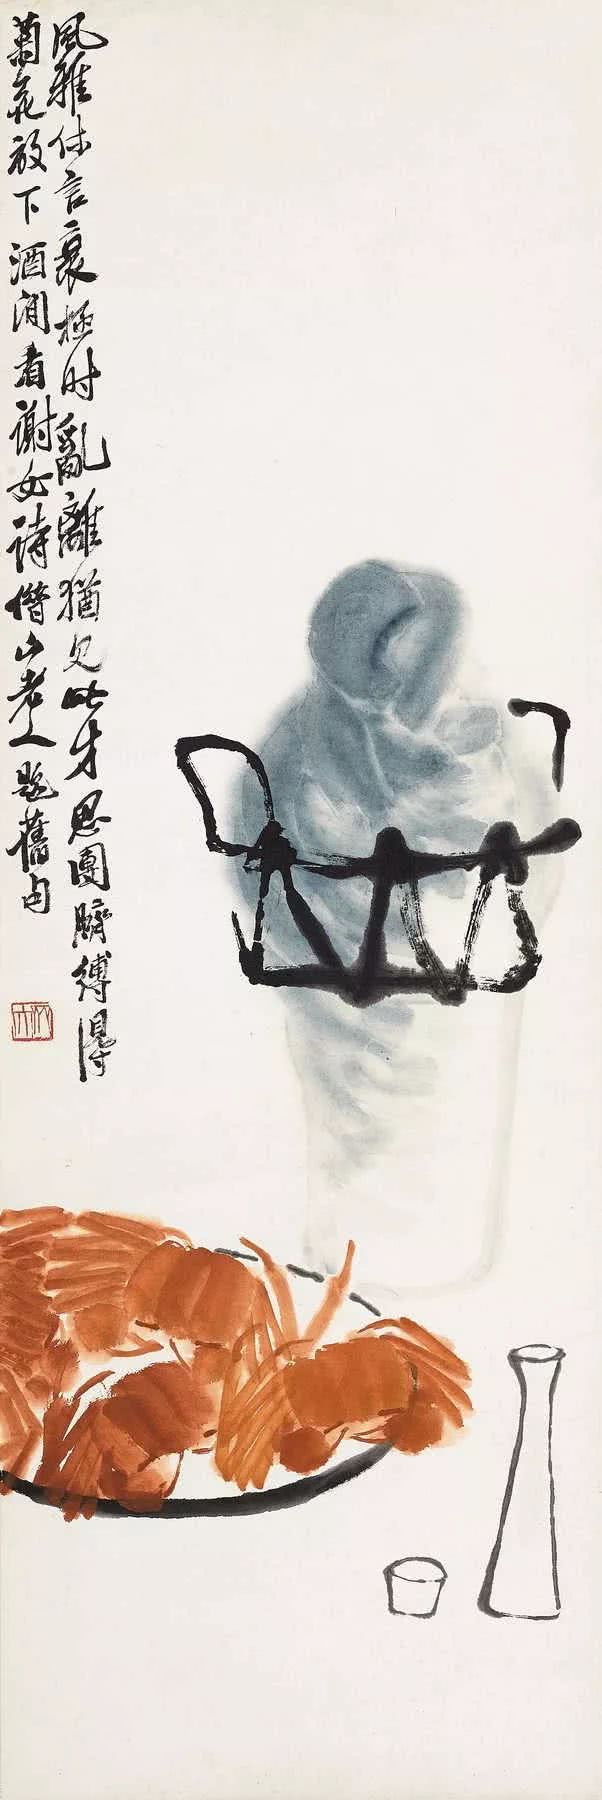 風雅休言衰極时亂離猶見此才思團臍縛得
菊花放下酒闲看謝女詩借山老人題舊句
木人